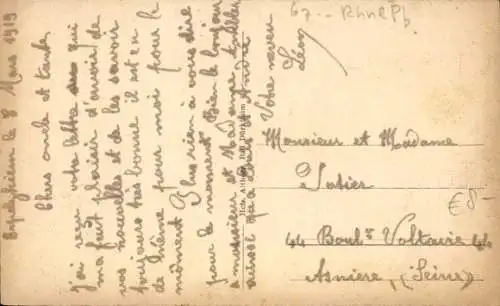 67.- RhnlPf
le 8 Mars 1919
Chers oncle et tante
j'ai reçu votre lettre qui
ma fait plaisir d'avoir de
vos nouvelles et de les savoir
toujours très bonne il est en
de même pour moi pour le
moment Plus rien à vous dire
pour le moment Bien le bonjour
a monsieur et Madame
aussi qu'a Louis et André
Votre neveu
Léon
Monsieur et Madame
Satier
44 Boulᵈ Voltaire 44
Asniere, (Seine)
€8-